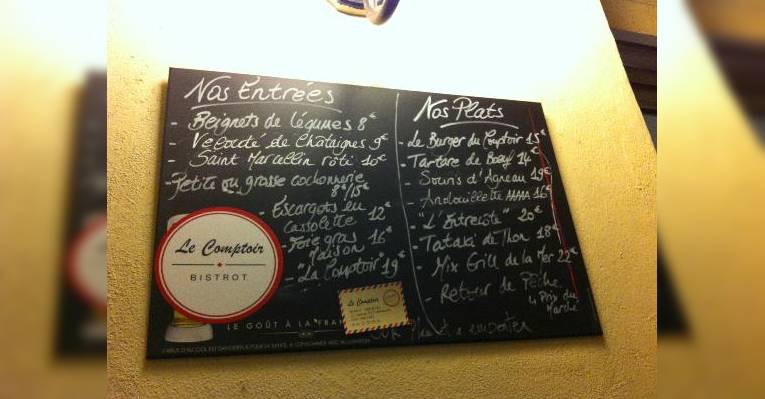 Nos Entrées
- Beignets de légumes 8€
- Velouté de Chataignes 9€
- Saint Marcellin rôti 10€
- Petite ou grosse cochonnerie
8€/15€
- Escargots en
Cassolette 12€
- Foie gras 16€
Maison
- "La Comptoir" 19€
Le Comptoir
BISTROT
LE GOÛT À LA FRA
Le Comptoir
Nos Plats
- Le Burger du Comptoir 15€
- Tartare de Boeuf 14€
- Souris d'Agneau 19€
- Andouillette AAAAA 16€
- "L'Entrecôte" 20€
- Tataki de Thon 18€
- Mix Grill de la Mer 22€
- Retour de Pêche
Prix du
Marché
à emporter